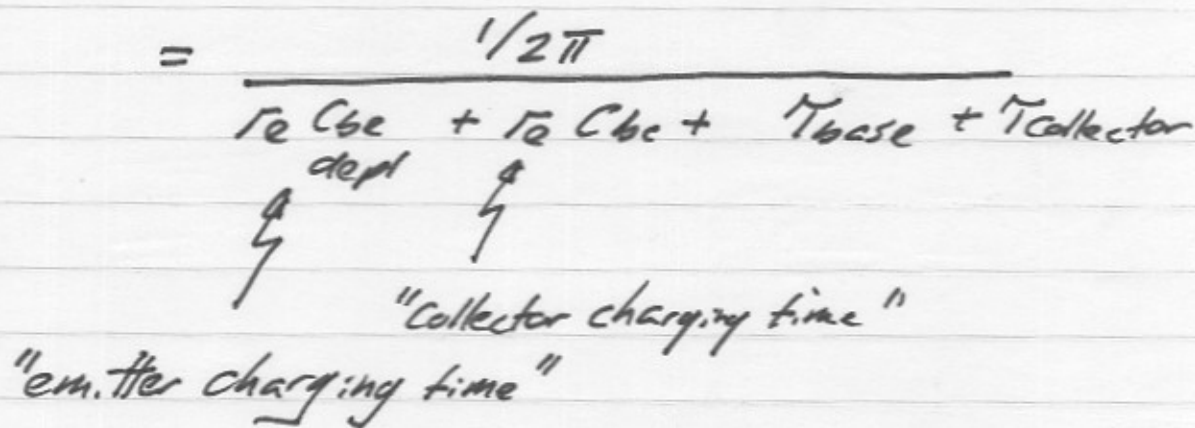 = 1/2π
re Cbe + re Cbc + τbase + τcollector
depl
"collector charging time"
"emitter charging time"